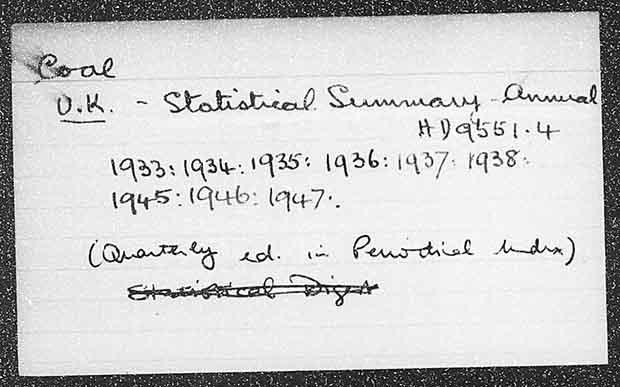 Coal
U.K. - Statistical Summary - Annual
HD9551.4
1933: 1934: 1935: 1936: 1937: 1938:
1945: 1946: 1947:.
(Quarterly ed. in Periodical Index)
Statistical Digest